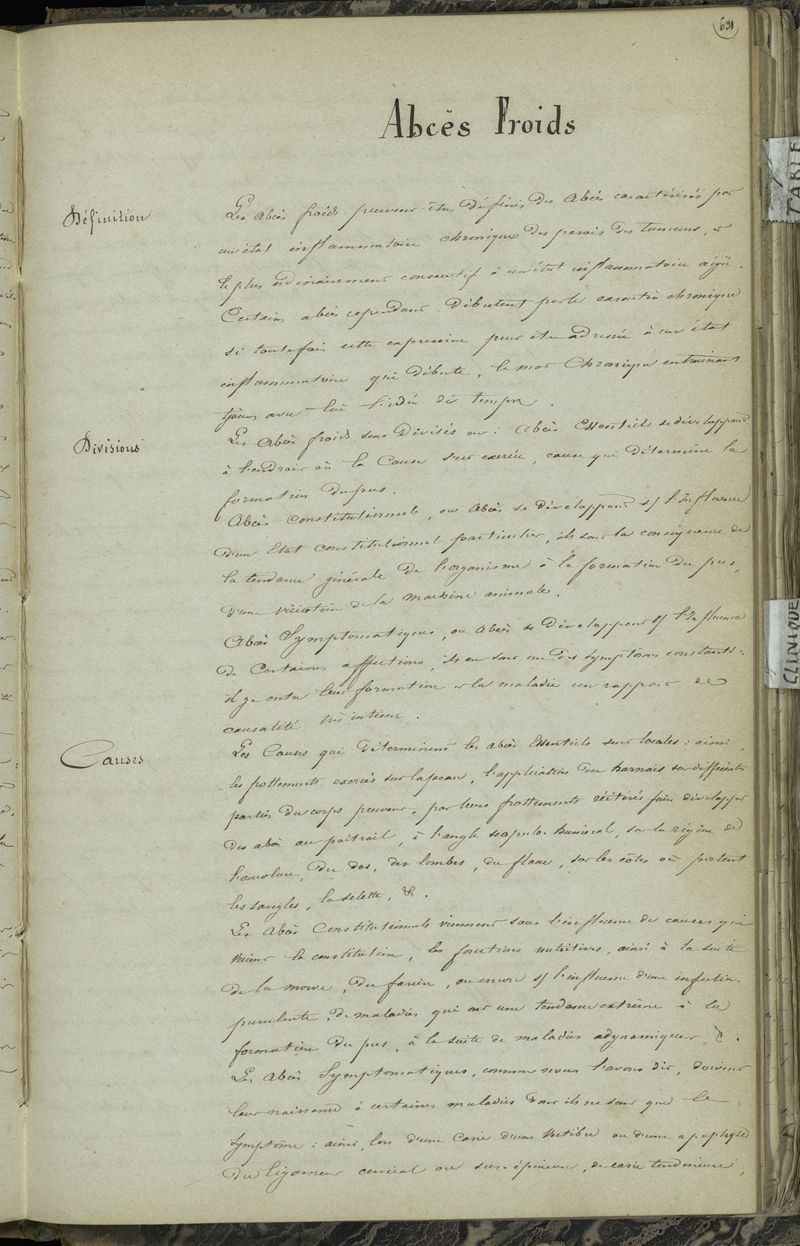 631
Abcès Froids
Définition
Les abcès froids peuvent être définis des abcès caractérisés par
un état inflammatoire chronique des parois des tumeurs, et
le plus ordinairement consécutif à un état inflammatoire aigü.
Certains abcès cependant débutent par le caractère chronique
si toutefois cette expression peut être adressée à un état
inflammatoire qui débute, le mot Chronique entrainant
tjours avec lui l'idée de temps.
Divisions
Les Abcès froids sont Divisés en : Abcès Essentiels se développant
à l'endroit où la Cause s'est exercée, cause qui détermine la
formation du pus.
Abcès constitutionnels, ou Abcès se développant s/ l'Influence
d'un Etat constitutionnel particulier, ils sont la conséquence de
la tendance générale de l'organisme à la formation du pus,
d'une viciation de la machine animale.
Abcès Symptomatiques, ou Abcès se développant s/ l'Influence
de Certaines affections, ils en sont un des symptômes constants :
il y a entre leur formation et la maladie un rapport de
causalité très intime.
Causes
Les Causes qui déterminent les abcès Essentiels sont locales : ainsi
les frottements exercés sur la peau, l'application du harnais sur différentes
parties du corps peuvent, par leurs frottements réitérés faire développer
des abcès au poitrail, à l'angle scapulo-huméral, sur la région de
l'encolure, du dos, des lombes, du flanc, sur les côtes où portent
les sangles, la selette, &.
Les Abcès Constitutionnels viennent sous l'influence de causes qui
la constitution, les fonctions nutritives, ainsi à la suite
de la morve, du farcin, ou encore s/ l'influence d'une infection
purulente, de maladies qui ont une tendance extrême à la
formation du pus, à la suite de maladies adynamiques, &.
Les Abcès Symptomatiques, comme nous l'avons dit, doivent
leur naissance à certaines maladies dont ils ne sont que le
symptôme : ainsi, lors d'une Carie d'une vertèbre ou d'une apophyse
du ligament cervical ou sus-épineux, de carie tendineuse,
TABLE
CLINIQUE